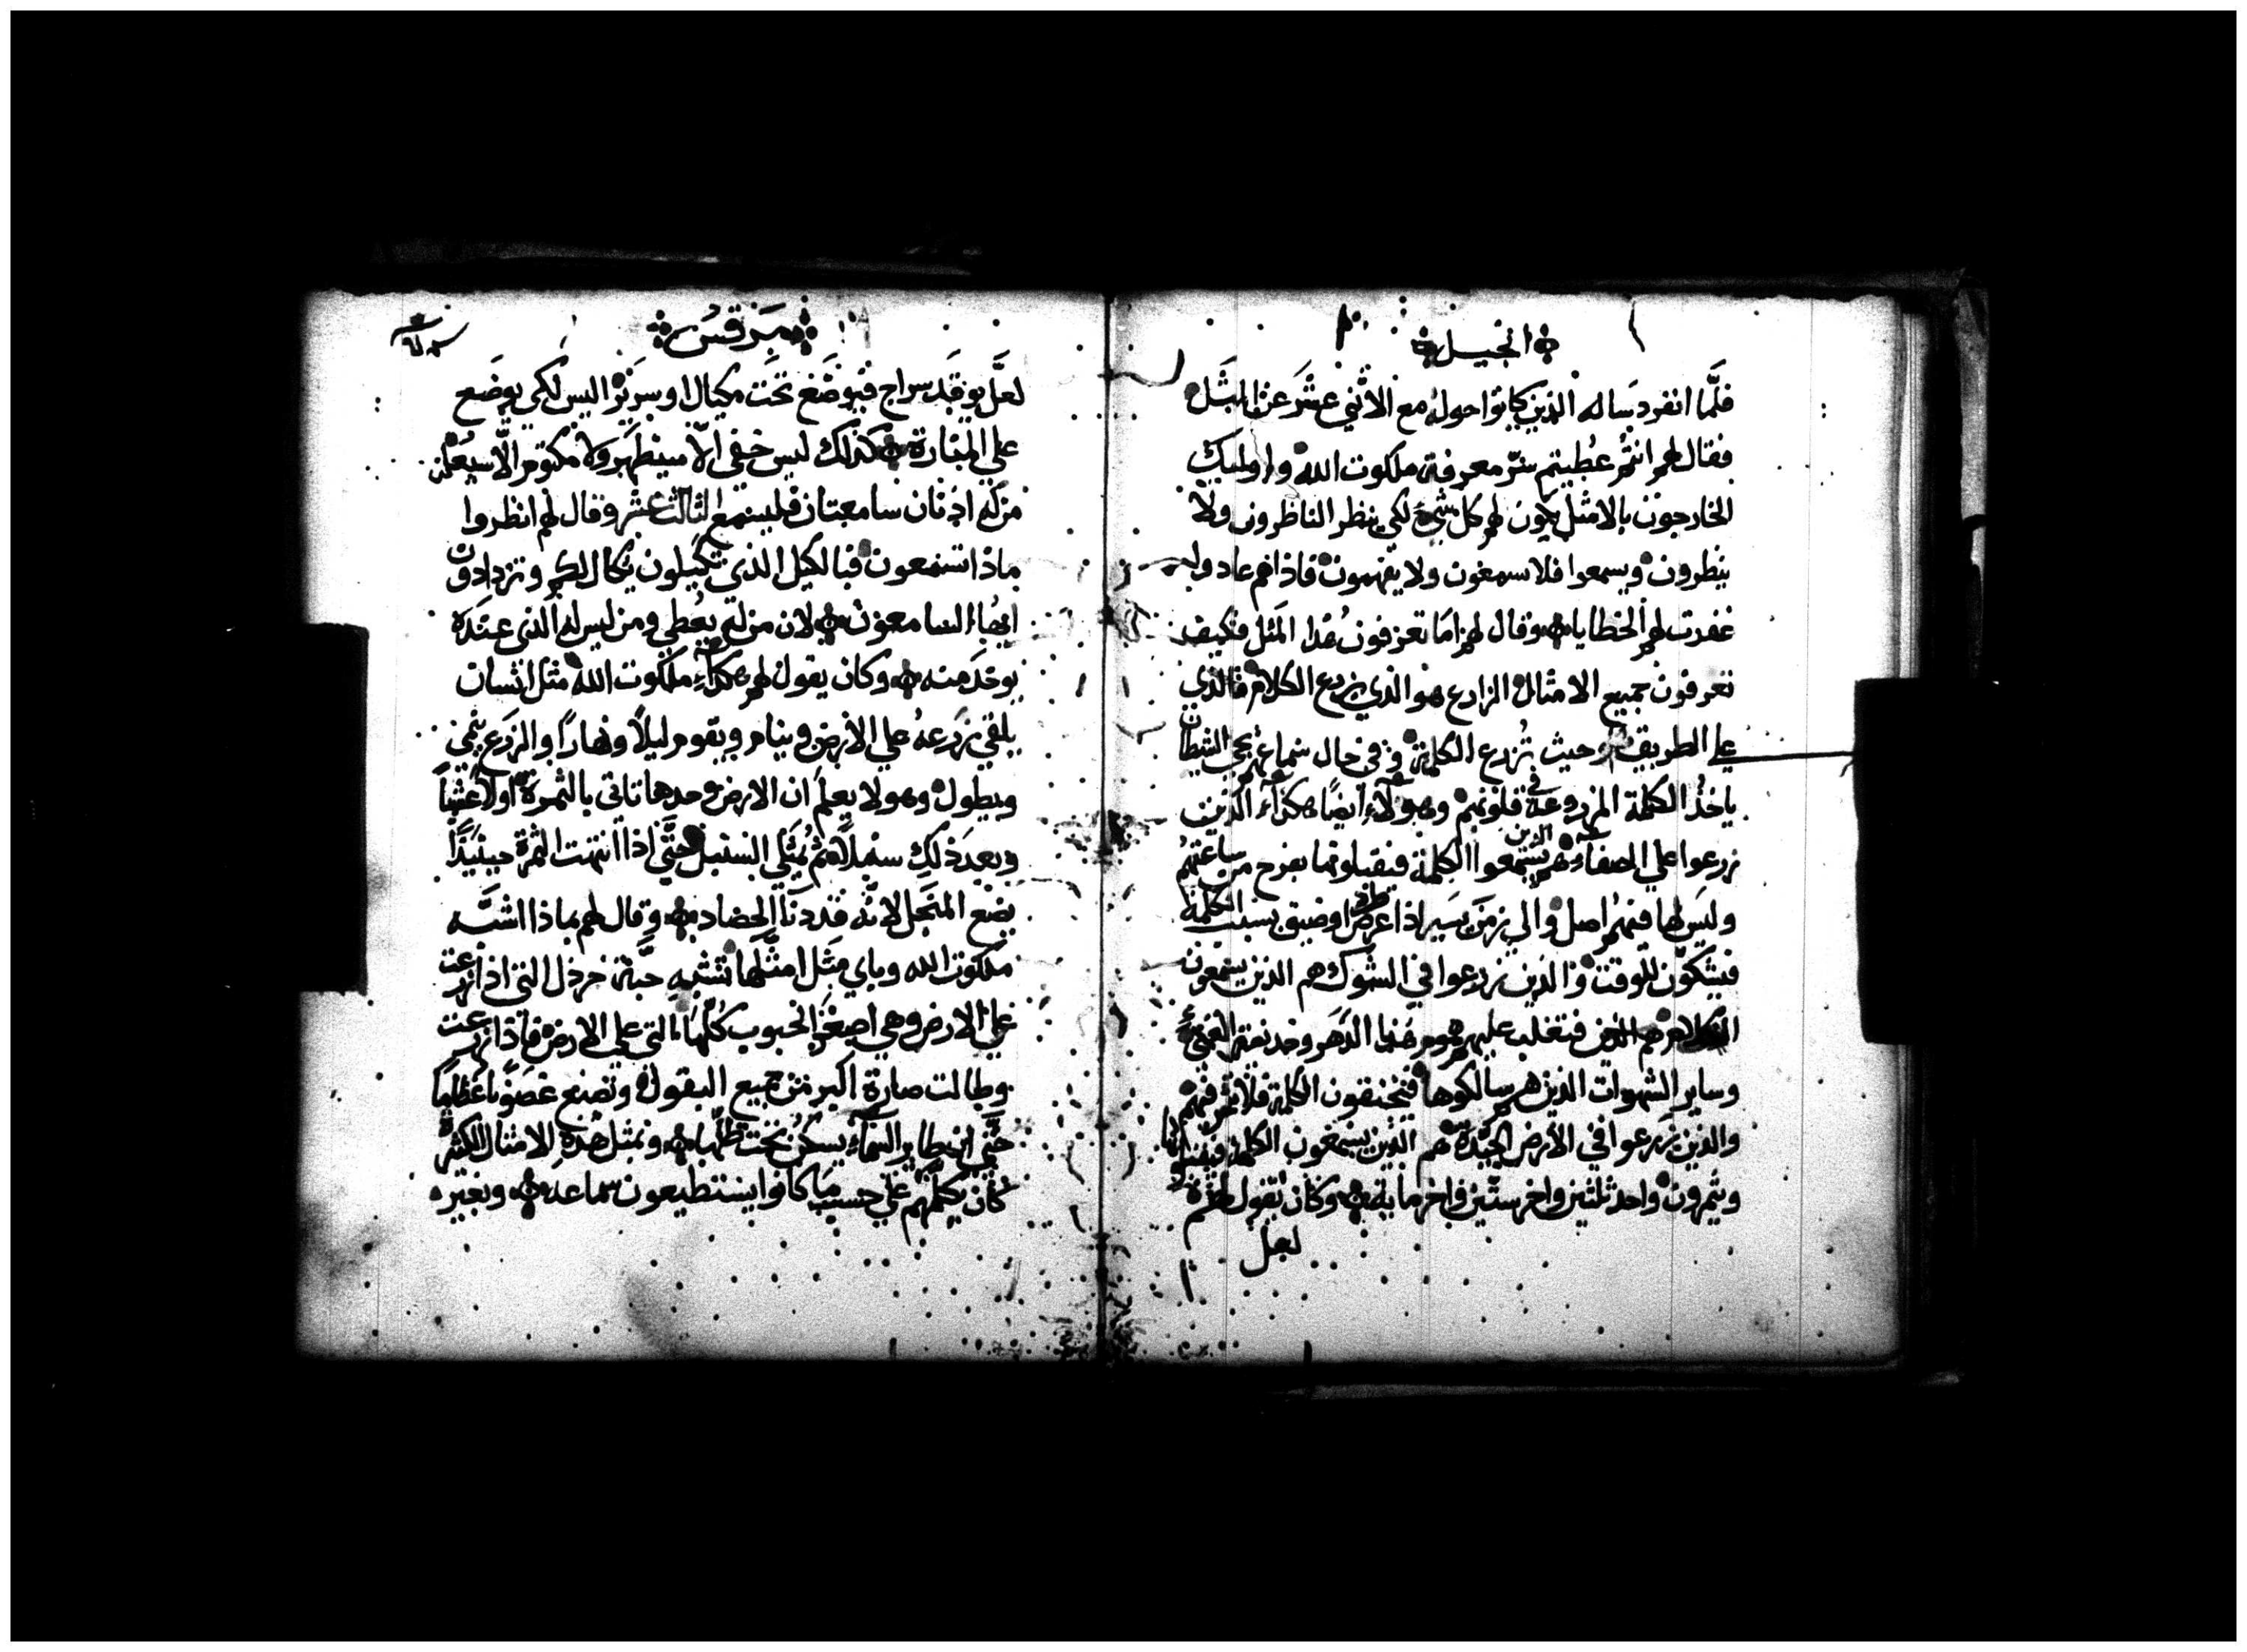 انجيل
فلَّما انفرد ساله الذين كانوا حوله مع الاثني عشَر عن المثَل
فقال لهم انتُم عُطيتم سّر معرفة ملكوت الله واوليك
الخارجون بالامثل يكون لهم كل شيء لكي ينظر الناظرون ولا
ينظرون ويسمعوا فلا يسمعون ولا يفهمون فاذا هم عادوا
غفرت لهم الخطايا وقال لهم اما تعرفون هذا المثل فكيف
تعرفون جميع الامثال الزارع هو الذي يزرع الكلام فالذي
علي الطريق حيث تُزرع الكلمة وفي حال سماعهم يجي الشيطان
ياخذ الكلمة المزروعة في قلوبهم وهولاء ايضًا هكذا الذين
زرعوا علي الصفاء هم الذين يستمعوا الكلمة فيقبلونها بفرح من ساعتهم
وليس لها فيهم اصل والي زمن يسير اذا عرض او ضيق بسبب الكلمة
فيشكّون للوقت والذين زرعوا في الشوك هم الذين يسمعون
الكلام فتغلب عليهم هموم هذا الدهر وخديعة الغنيّ
وساير الشهوات الذين هم سالكوها فيختنقون الكلمة فلا تثمر فيهم
والذين زرعوا في الارض الجيّدة هم الذين يسمعون الكلمة
ويثمرون واحد ثلثين واخر ستّين واخر مايه وكان يقول لهم
لعل
مرقس
لعَّل يوقَد سراج فيوضَع تحت مكيال او سرير اليس لكي يوضع
علي المنارة كذلك ليس خفي الّا سيظهر ولا مكتوم الّا سيُعلن
من له اذنان سامعتان فليسمع الثالث عشر وقال لهم انظروا
ماذا تسمعون فبالكيل الذي تكيلون يكال لكم وتزدادون
ايها السامعون لان من له يُعطي ومن ليس له الذي عنده
يوخذ منه وكان يقول لهم هكذا ملكوت الله مثل انسان
يلقي زرعهُ علي الارض وينام ويقوم ليلًا ونهارًا والزرع ينمي
ويطول وهو لا يعلم ان الارض وحدها تاتي بالثمرة اولًا عشبًا
وبعد ذلك سنبلًا ثم يمتلي السنبل حتَّي اذا انتهت الثمرة حينيذٍ
يضع المنجل لانّه قد دنا الحصاد وقال لهم بماذا اشبّه
ملكوت الله وباي مثل امثّلها تشبه حبَّة خردل التي اذا زرعت
علي الارض وهي اصغر الحبوب كُلّها التي علي الارض فاذا زرعت
وطالت صارة اكبر من جميع البقول وتصنع غصونًا عظامًا
حتَّي ان طاير السماء يسكن تحت ظلّها وبمثل هذه الامثال الكثيرة
كان يكلّمهم علي حسب ما كانوا يستطيعون سماعه وبغير